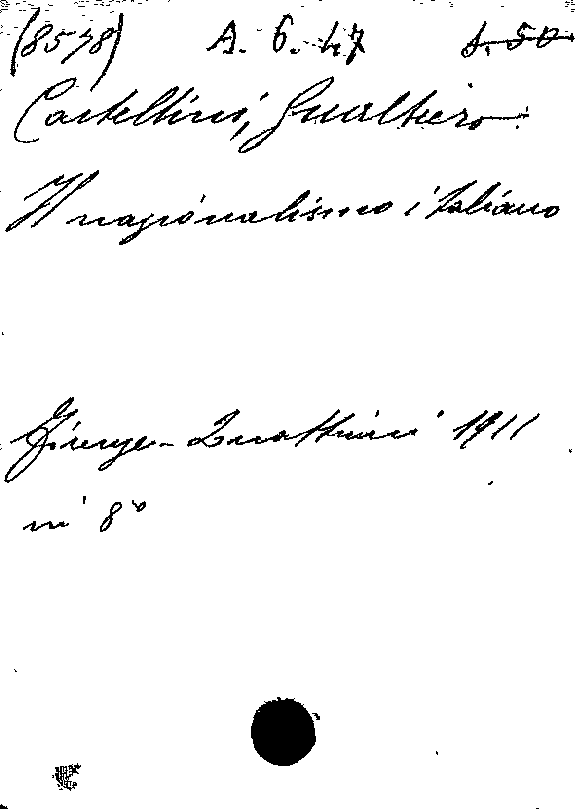 (8578) A. 6. 47
Castellini, Gualtiero
Il nazionalismo italiano
Firenze - Quattrini 1911
in 8°